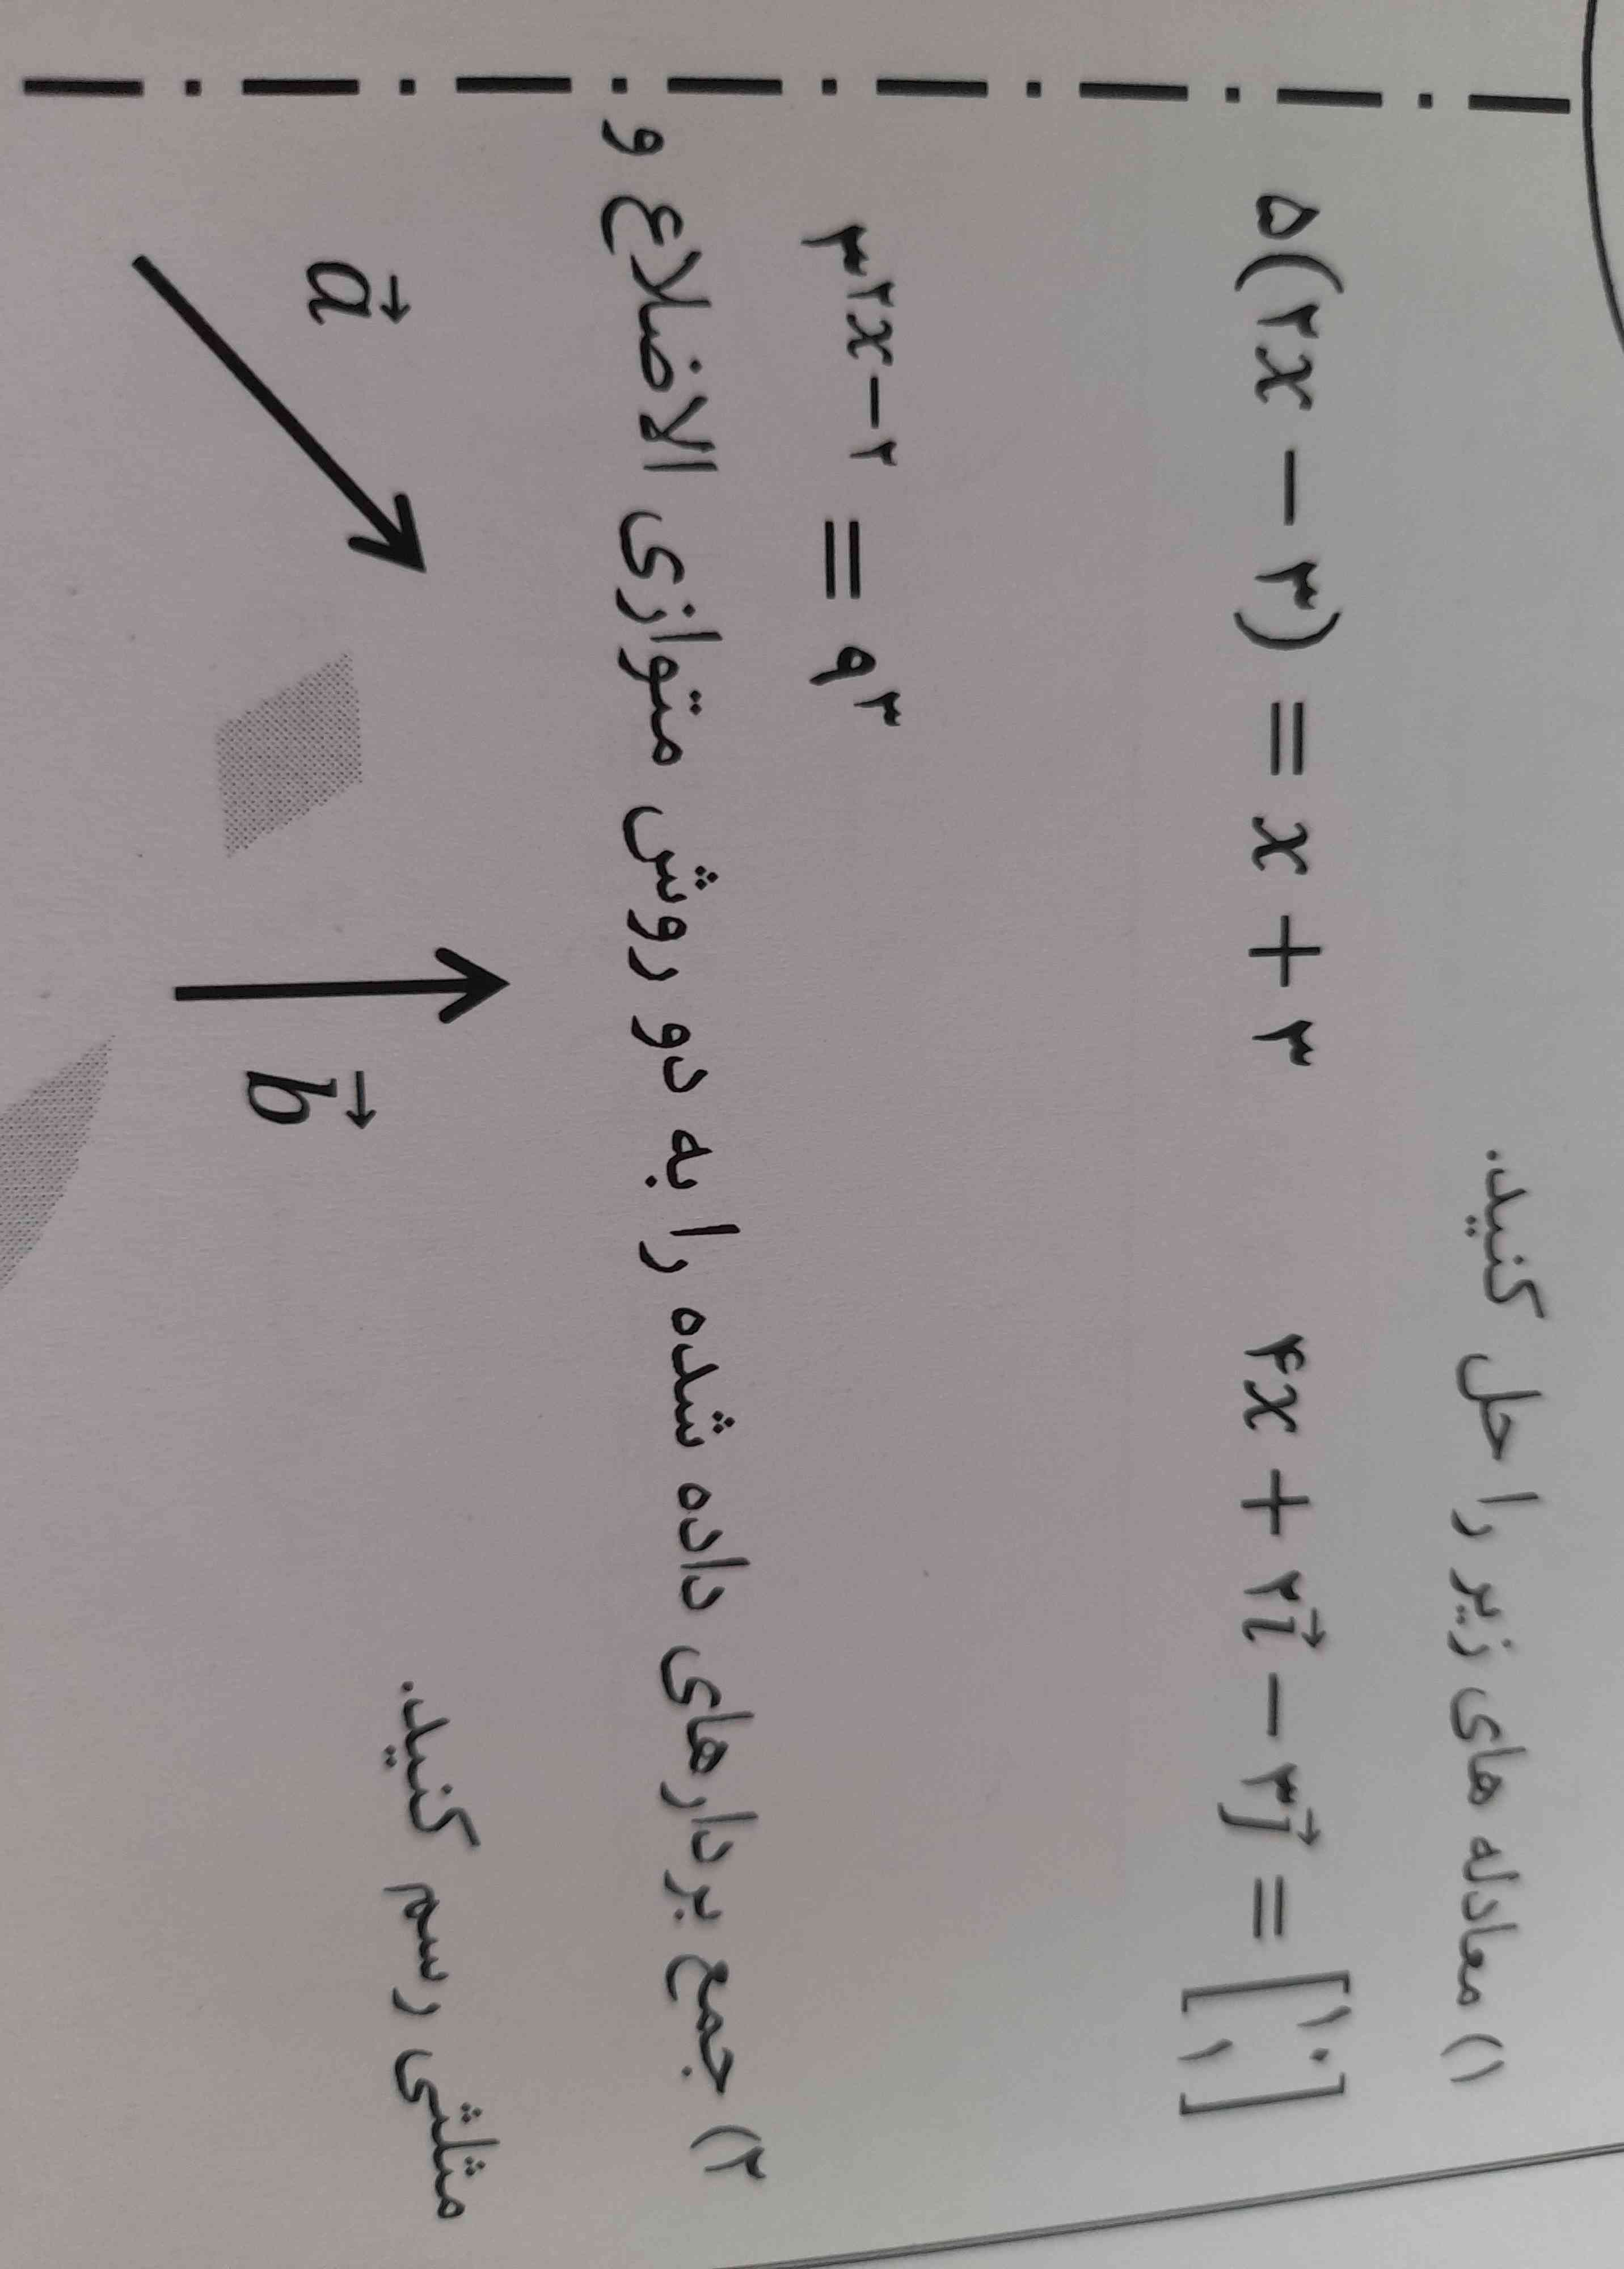 ۱) معادله های زیر را حل کنید.
۵(۲x − ۳) = x + ۳    ۴x + ۲i⃗ − ۳j⃗ = [۱۰ ۱]
۳²ˣ⁻² = ۹³
۲) جمع بردارهای داده شده را به دو روش متوازی الاضلاع و
مثلثی رسم کنید.
a⃗
b⃗